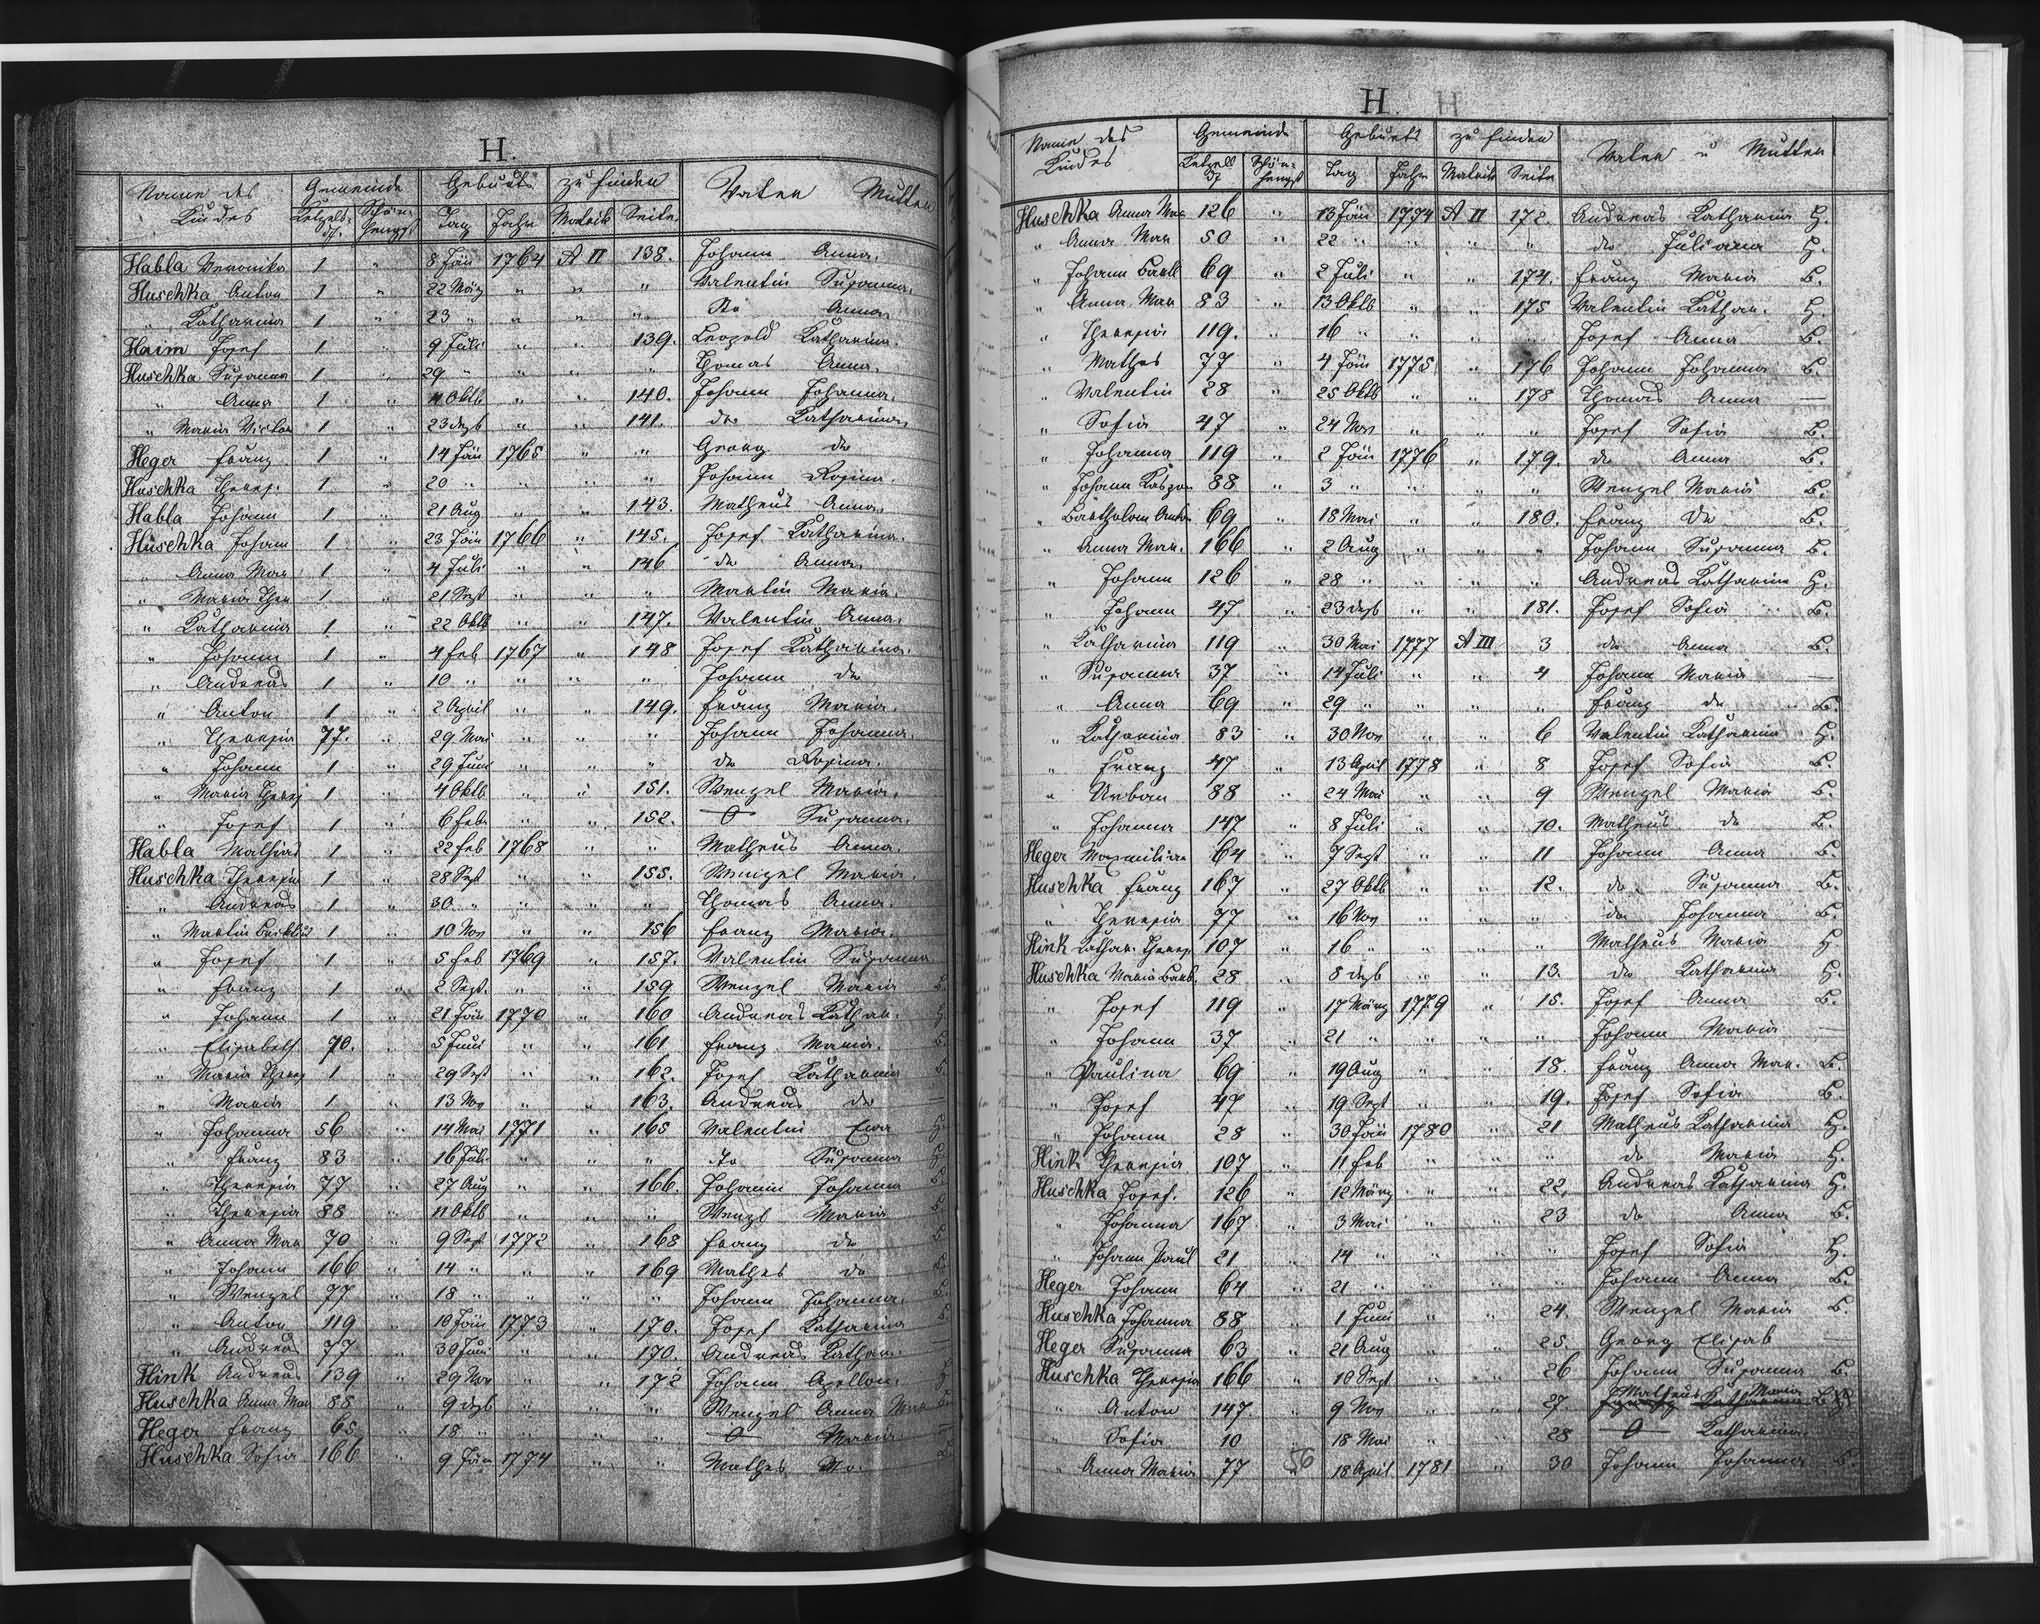 H.
Name des Kindes Gemeinde Geburts zu finden Vater Mutter
Ketzelsdf. Schönhengst Tag Jahr Matrik Seite
Habla Veronika 1 " 8 Jän 1764 A II 138. Johann Anna.
Huschka Anton 1 " 22 März " " " Valentin Susanna.
" Katharina 1 " 23 " " " " Anna
Haim Josef 1 " 9 Juli " " 139. Leopold Katharina.
Huschka Susanna 1 " 29 " " " " Thomas Anna.
" Anna 1 " Oktb " " 140. Johann Johanna.
" Maria 1 " 23 dezb " " 141. do Katharina
Heger Franz 1 " 14 Jän 1765 " " Georg do
Huschka Theres. 1 " 20 " " " " Johann Rosina.
Habla Johann 1 " 21 Aug " " 143. Matheus Anna.
Huschka Johann 1 " 23 Jän 1766 " 145. Josef Katharina.
" Anna Mar 1 " 4 Juli " " 146 do Anna.
" Maria Ther 1 " 21 Sept " " " Martin Maria.
" Katharina 1 " 22 Oktb " " 147. Valentin Anna.
" Johann 1 " 4 Feb 1767 " 148 Josef Katharina.
" Andreas 1 " 10 " " " " Johann do
" Anton 1 " 2 April " " 149. Franz Maria.
" Theresia 77. " 29 Mai " " " Johann Johanna.
" Johann 1 " 29 Juni " " " do Rosina.
" Maria Theres 1 " 4 Oktb " " 151. Wenzel Maria.
" Josef 1 " 6 Febr " " 152. 0 Susanna.
Habla Mathias 1 " 22 Feb 1768 " " Matheus Anna.
Huschka Theresia 1 " 28 Sept " " 155. Wenzel Maria.
" Andreas 1 " 30 " " " " Thomas Anna.
" Martin 1 " 10 Nov " " 156 Franz Maria.
" Josef 1 " 5 Feb 1769 " 157. Valentin Susanna
" Franz 1 " 2 Sept. " " 159 Wenzel Maria B.
" Johann 1 " 21 Jän 1770 " 160 Andreas Kathar. H
" Elisabeth 70. " 5 Juni " " 161 Franz Maria. B.
" Maria Theres 1 " 29 Sept " " 162. Josef Katharina B
" Maria 1 " 13 Nov " " 163. Andreas do —
" Johanna 56 " 14 Mai 1771 " 165 Valentin Eva H.
" Franz 83 " 16 Juli " " " do Susanna H
" Theresia 77 " 27 Aug " " 166. Johann Johanna B
" Theresia 88 " 11 Oktb " " " Wenzl Maria B
" Anna Mar 70 " 9 Sept 1772 " 168 Franz do B
" Johann 166 " 14 " " " 169 Mathes do B.
" Wenzel 77 " 18 " " " " Johann Johanna. B.
" Anton 119 " 10 Jän 1773 " 170. Josef Katharina B.
" Andreas 77 " 30 Juni " " 170. Andreas Kathar. —
Hink Andreas 139 " 29 Nov " " 172 Johann Apellon. H
Huschka Anna Mar 88 " 9 dezb " " " Wenzel Anna Mar B.
Heger Franz 65 " 18 " " " " 0 Maria. —
Huschka Sofia 166 " 9 Jän 1774 " " Mathes Do. B.
H.
Name des Kindes Gemeinde Geburts zu finden Vater u Mutter
Ketzelsdf Schönhengst Tag Jahr Matrik Seite
Huschka Anna Mar 126 " 13 Jän 1774 A II 172. Andreas Katharina H.
" Anna Mar 50 " 22 " " " " do Juliana H.
" Johann Bartl 69 " 2 Juli " " 174. Franz Maria B.
" Anna Mar 83 " 13 Oktb " " 175 Valentin Kathar. H.
" Theresia 119. " 16 " " " " Josef Anna B.
" Mathes 77 " 4 Jän 1775 " 176 Johann Johanna B.
" Valentin 28 " 25 Oktb " " 178 Thomas Anna —
" Sofia 47 " 24 Nov " " " Josef Sofia B.
" Johanna 119 " 2 Jän 1776 " 179. do Anna B.
" Johann Kaspar 88 " 3 " " " " Wenzel Maria B.
" Bartholom Anton 69 " 18 Mai " " 180. Franz Do B.
" Anna Mar. 166 " 2 Aug " " " Johann Susanna B.
" Johann 126 " 28 " " " " Andreas Katharina H.
" Johann 47 " 23 dezb " " 181. Josef Sofia B.
" Katharina 119 " 30 Mai 1777 A III 3 do Anna B.
" Susanna 37 " 14 Juli " " 4 Johann Maria —
" Anna 69 " 29 " " " " Franz do B.
" Katharina 83 " 30 Nov " " 6 Valentin Katharina H.
" Franz 47 " 13 April 1778 " 8 Josef Sofia B.
" Urban 88 " 24 Mai " " 9 Wenzel Maria B.
" Johanna 147 " 8 Juli " " 10. Matheus do B.
Heger Maximilian 64 " 7 Sept " " 11 Johann Anna B.
Huschka Franz 167 " 27 Oktb " " 12. do Susanna B.
" Theresia 77 " 16 Nov " " " do Johanna B.
Hink Kathar. Theres 107 " 16 " " " " Matheus Maria H.
Huschka Maria Barb. 28 " 8 dezb " " 13. do Katharina H.
" Josef 119 " 17 März 1779 " 15. Josef Anna B.
" Johann 37 " 21 " " " " Johann Maria —
" Paulina 69 " 19 Aug " " 18. Franz Anna Mar. B.
" Josef 47 " 19 Sept " " 19. Josef Sofia B.
" Johann 28 " 30 Jän 1780 " 21 Matheus Katharina H.
Hink Theresia 107 " 11 Feb " " " do Maria H.
Huschka Josef. 126 " 12 März " " 22. Andreas Katharina H.
" Johanna 167 " 3 Mai " " 23 do Anna B.
" Johann Paul 21 " 14 " " " " Josef Sofia H.
Heger Johann 64 " 21 " " " " Johann Anna B.
Huschka Johanna 88 " 1 Juni " " 24. Wenzel Maria B.
Heger Susanna 63 " 21 Aug " " 25. Georg Elisab —
Huschka Theresia 166 " 10 Sept " " 26 Johann Susanna B.
" Anton 147. " 9 Nov " " 27. Matheus Maria B.
" Sofia 10 18 Mai " " 28 0 Katharina.
" Anna Maria 77 56 18 April 1781 " 30 Johann Johanna B.